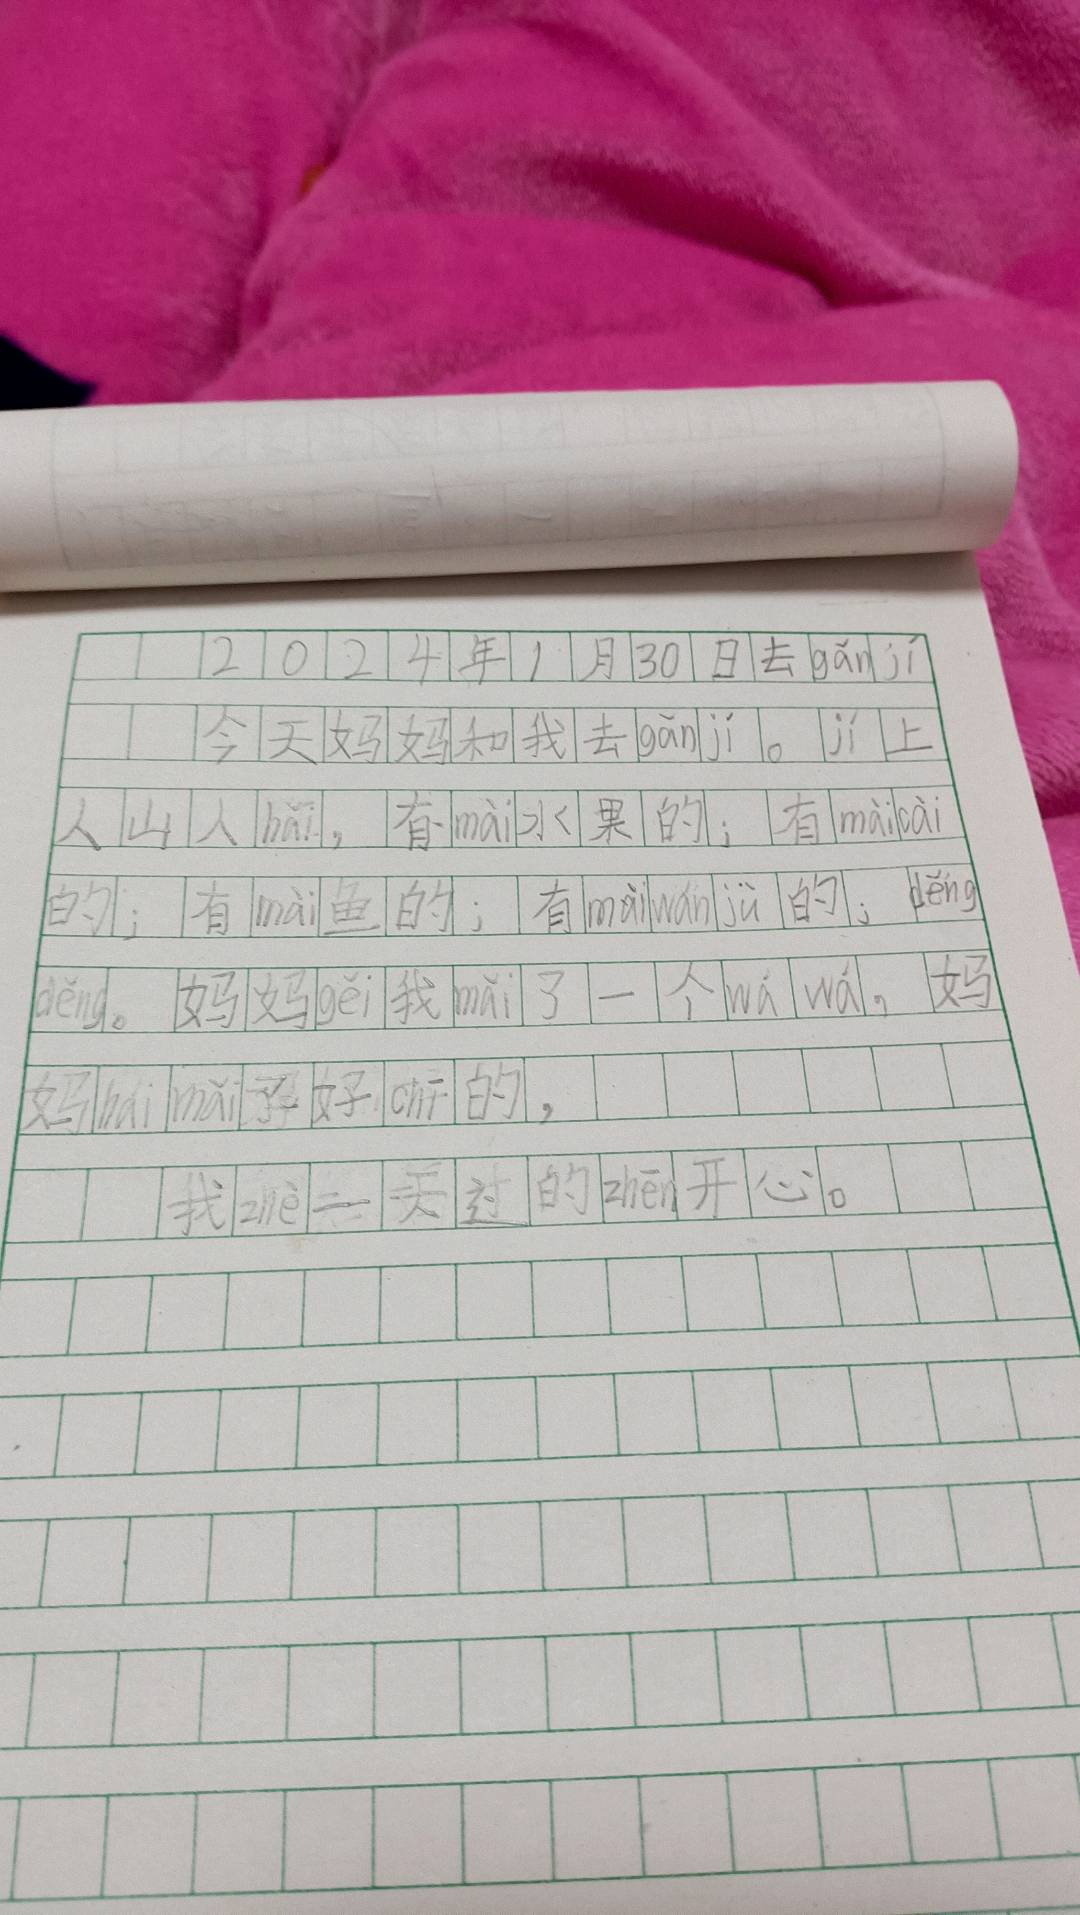 2024年1月30日去gǎnjí
今天妈妈和我去gǎnjí。jí上
人山人hǎi,有mài水果的;有màicài
的;有mài鱼的;有màiwánjù的;děng
děng。妈妈gěi我mǎi了一个wá wá,妈
妈hái mǎi 好好chī的,
我zhè一天过的zhēn开心。